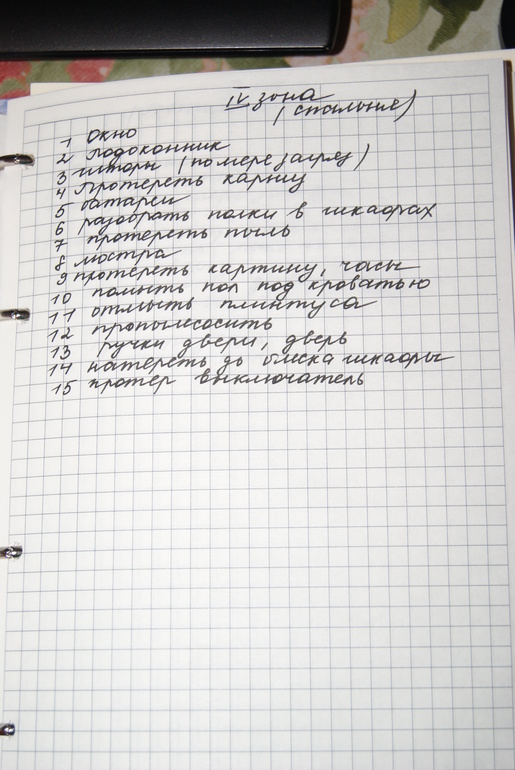 IV зона
(спальные)
1 Окно
2 Подоконник
3 шторы (по мере загряз)
4 Протереть карниз
5 батареи
6 разобрать полки в шкафах
7 протереть пыль
8 люстра
9 протереть картину, часы
10 помыть пол под кроватью
11 отмыть плинтуса
12 пропылесосить
13 ручки двери, дверь
14 натереть до блеска шкафы
15 протер выключатель